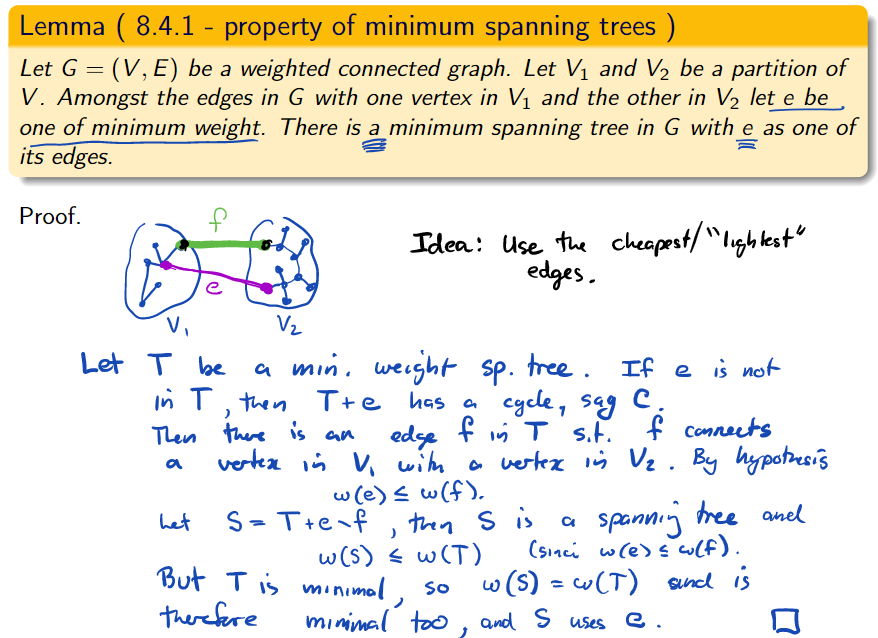 Lemma ( 8.4.1 - property of minimum spanning trees )
Let G = (V, E) be a weighted connected graph. Let V₁ and V₂ be a partition of
V. Amongst the edges in G with one vertex in V₁ and the other in V₂ let e be
one of minimum weight. There is a minimum spanning tree in G with e as one of
its edges.
Proof.
f
e
V₁ V₂
Idea: Use the cheapest/"lightest"
edges.
Let T be a min. weight sp. tree. If e is not
in T, then T+e has a cycle, say C.
Then there is an edge f in T s.t. f connects
a vertex in V₁ with a vertex in V₂. By hypothesis
w(e) ≤ w(f).
Let S = T+e\f, then S is a spanning tree and
w(S) ≤ w(T) (since w(e) ≤ w(f).
But T is minimal, so w(S) = w(T) and is
therefore minimal too, and S uses e. □